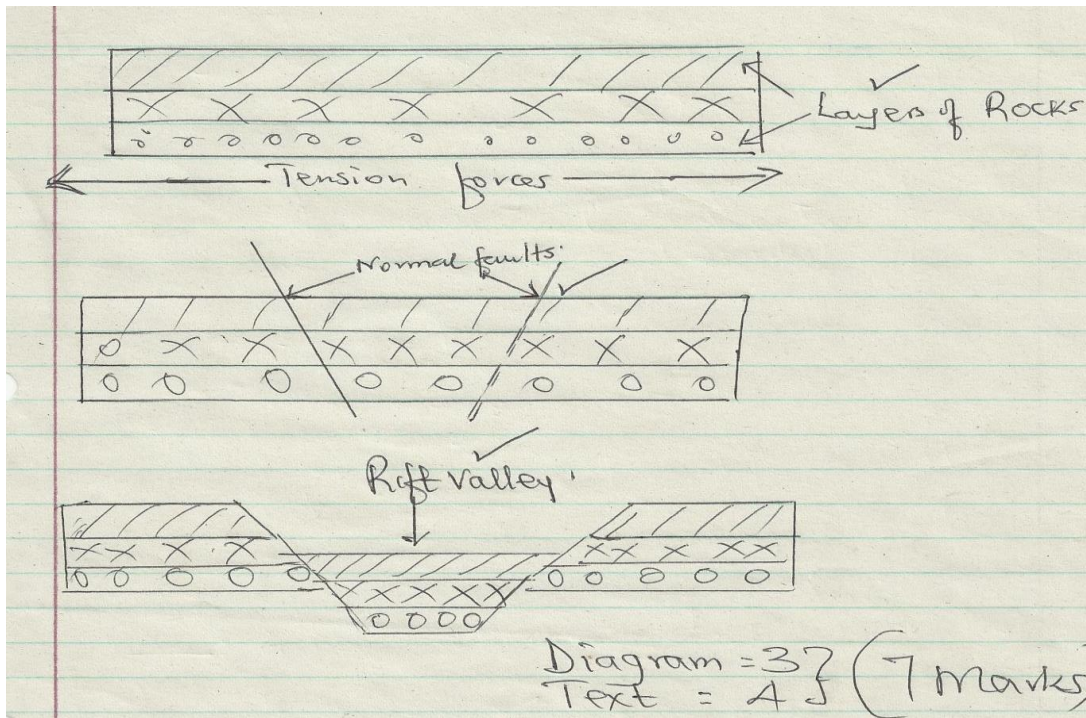 Layers of Rocks
Tension forces
Normal faults.
Rift Valley.
Diagram = 3 } (7 Marks)
Text = 4